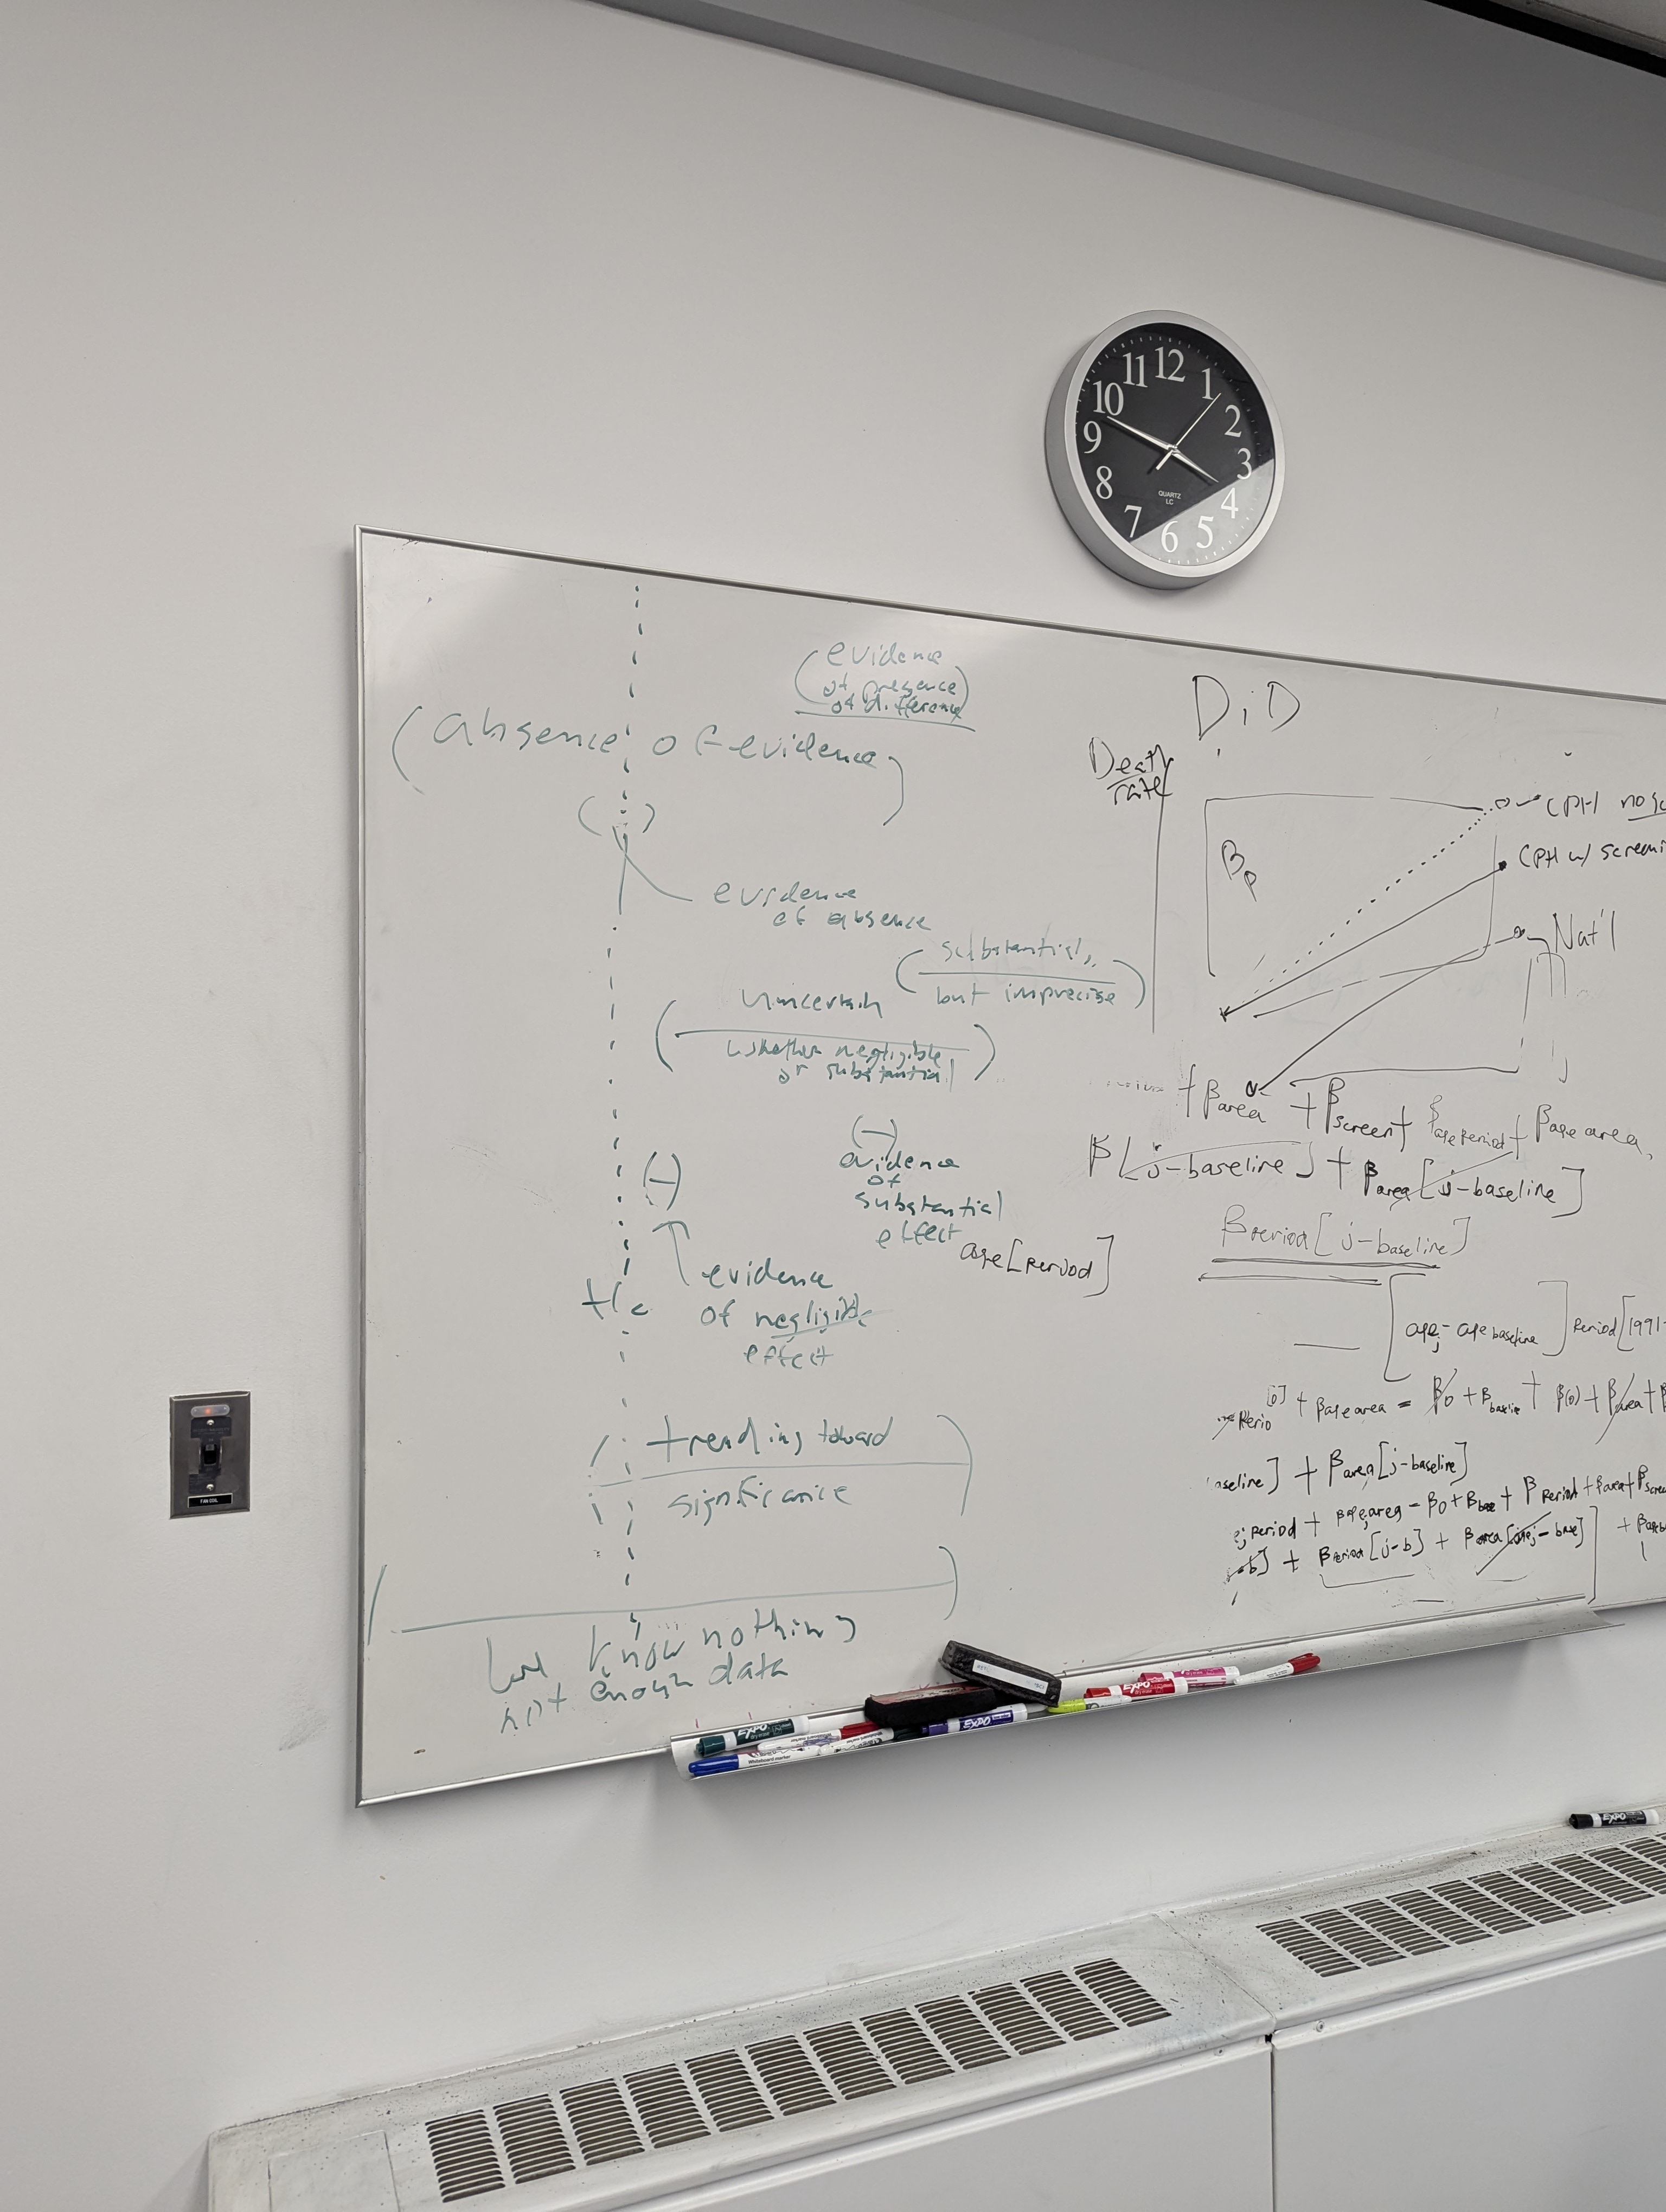 12
1
2
3
4
5
6
7
8
9
10
11
QUARTZ
LC
evidence
of presence
of difference
absence of evidence
evidence
of absence
substantial,
but imprecise
uncertain
whether negligible
or substantial
evidence
of
substantial
effect
evidence
of negligible
effect
trending toward
significance
we know nothing
not enough data
DiD
Death
rate
βp
CPH
CPH w/
Nat'l
+ βarea + βscreen + βage period + βage area,
β[j-baseline] + βarea[j-baseline]
βPeriod[j-baseline]
age[Period]
[agej - age baseline] Period[1991-
+ βage area = β0 + β + β(0) + βarea +
aseline] + βarea[j-baseline]
Period + βage,area = β0 + βbase + βPeriod + βarea +
-b] + βPeriod[j-b] + βarea[agej - base]
FAN COIL
EXPO
EXPO
EXPO
Whiteboard marker
EXPO